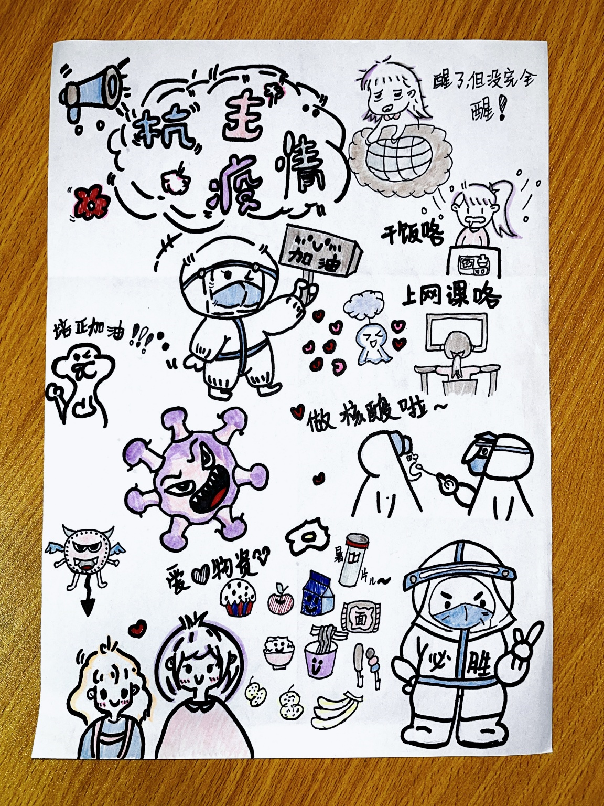 抗击
疫情
醒了,但没完全
醒!
干饭咯
加油
上网课咯
培正加油!!!
做核酸啦~
爱♡物资
面
必胜